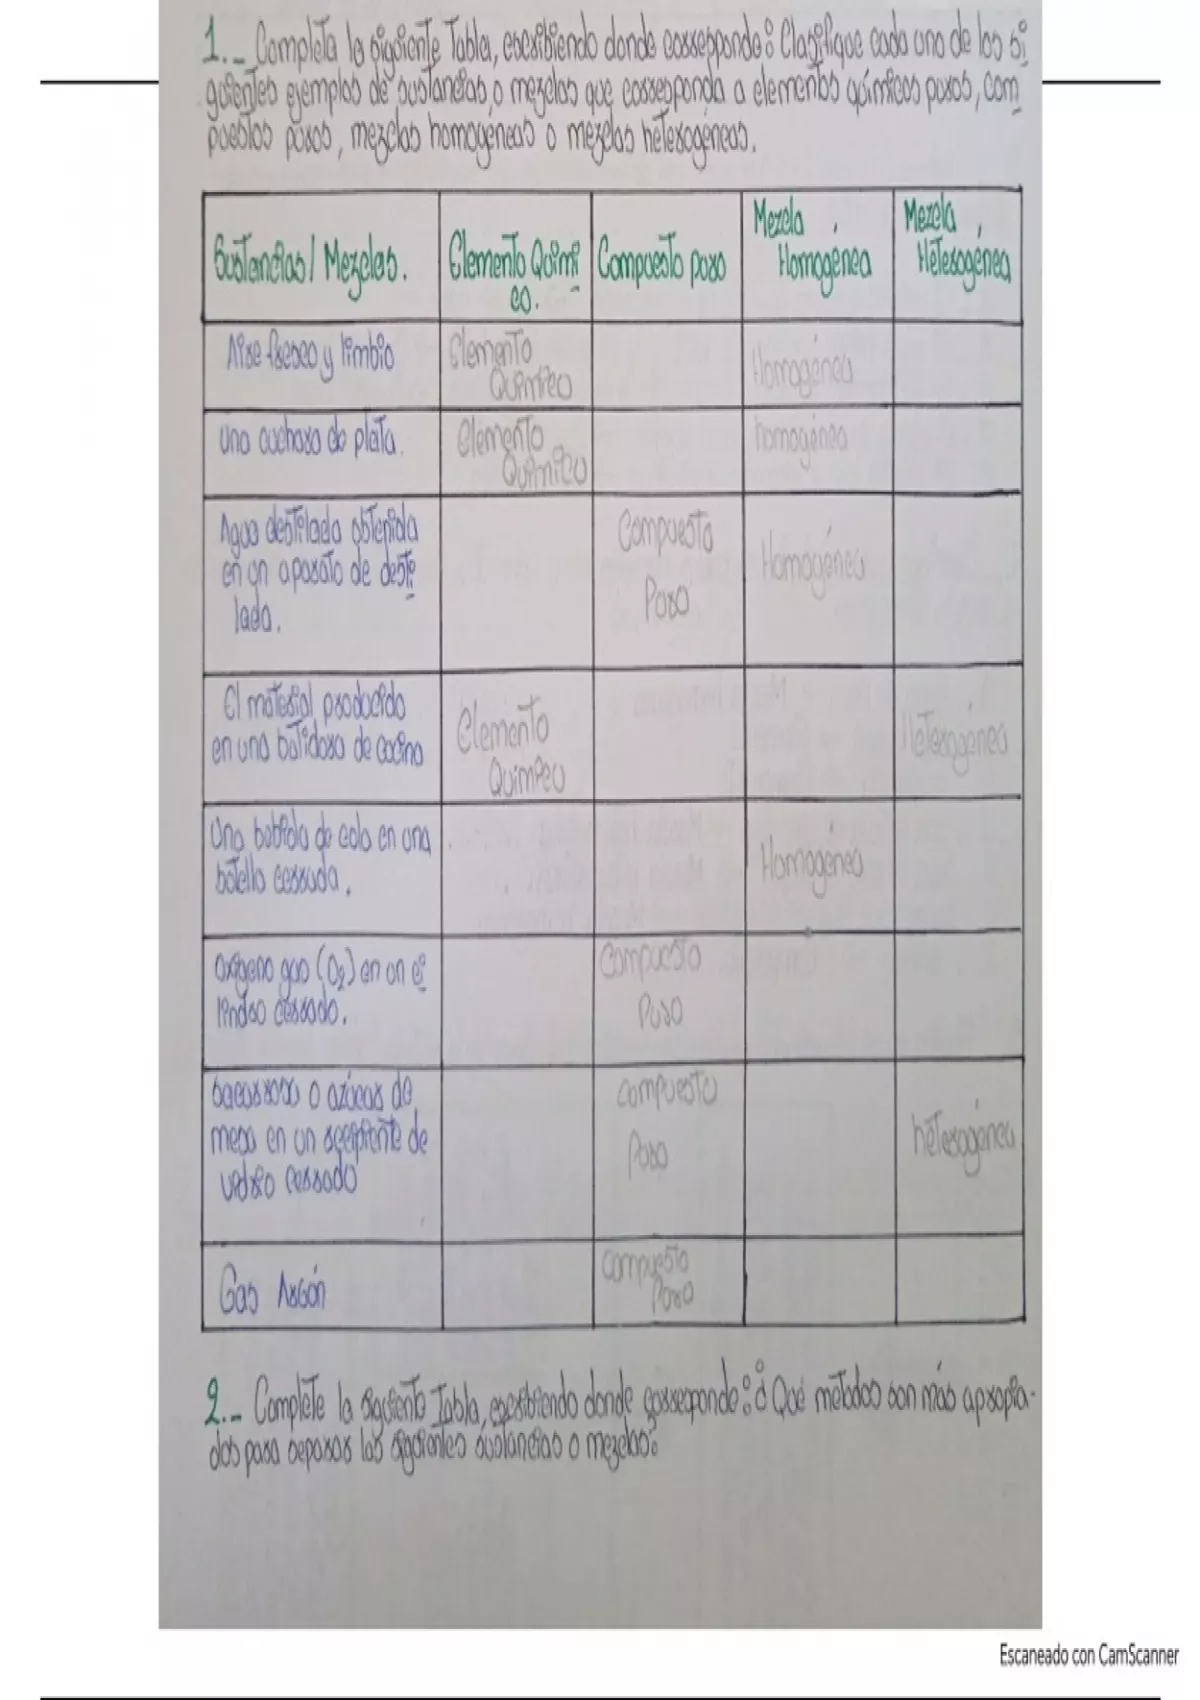 1._ Completa la siguiente Tabla, escribiendo donde corresponda: Clasifique cada uno de los si
guientes ejemplos de sustancias o mezclas que corresponda a elementos químicos puros, com
puestos puros, mezclas homogéneas o mezclas heterogéneas.
Sustancias / Mezclas.
Elemento Quimi
co.
Compuesto puro
Mezcla
Homogénea
Mezcla
Heterogénea
Aire fresco y limbio
Elemento
Quimico
Homogénea
Una cuchara de plata.
Elemento
Quimico
homogénea
Agua destilada obtenida
en un aparato de desti
lada.
Compuesto
Puro
Homogénea
El material producido
en una batidora de cocina
Elemento
Quimico
Heterogénea
Una bebida de cola en una
botella cerrada.
Homogénea
Oxigeno gas (O2) en un ci
lindro cerrado.
Compuesto
Puro
Sacarosa o azúcar de
mesa en un recipiente de
vidrio cerrado
Compuesto
Puro
heterogénea
Gas Argón
Compuesto
Puro
2._ Complete la siguiente Tabla, escribiendo donde corresponde: ¿Qué métodos son más apropia-
dos para separar las siguientes sustancias o mezclas?
Escaneado con CamScanner